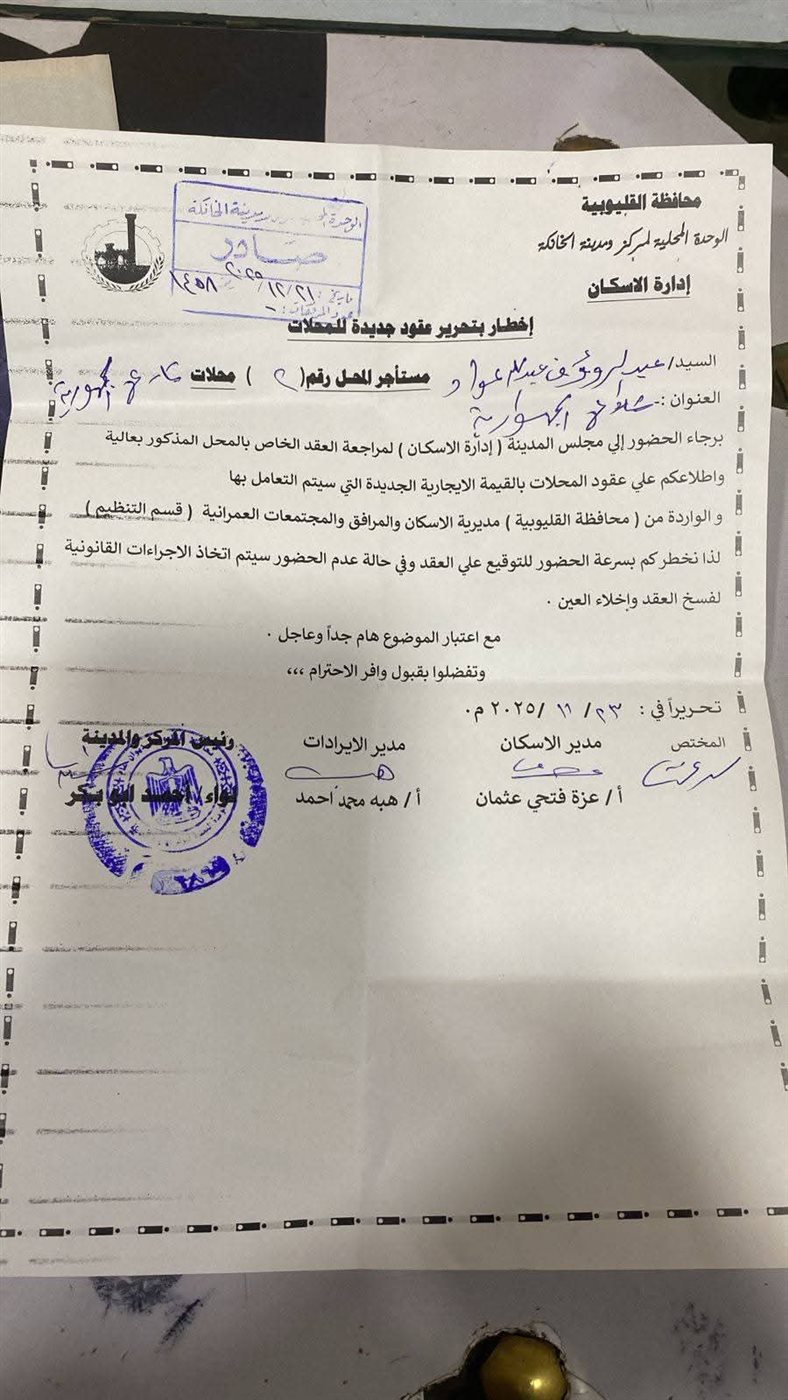 محافظة القليوبية
الوحدة المحلية لمركز ومدينة الخانكة
إدارة الاسكان
الوحدة المحلية لمركز ومدينة الخانكة
صادر
تاريخ : ٢٠٢٥/١٢/٢١
١٤٥٨
إخطار بتحرير عقود جديدة للمحلات
السيد/ عبدالرءوف عبدالله عواد مستأجر المحل رقم( ٢ ) محلات شارع الجمهورية
العنوان :- شارع الجمهورية
برجاء الحضور إلي مجلس المدينة ( إدارة الاسكان ) لمراجعة العقد الخاص بالمحل المذكور بعالية
واطلاعكم علي عقود المحلات بالقيمة الايجارية الجديدة التي سيتم التعامل بها
و الواردة من ( محافظة القليوبية ) مديرية الاسكان والمرافق والمجتمعات العمرانية ( قسم التنظيم )
لذا نخطركم بسرعة الحضور للتوقيع علي العقد وفي حالة عدم الحضور سيتم اتخاذ الاجراءات القانونية
لفسخ العقد وإخلاء العين .
مع اعتبار الموضوع هام جداً وعاجل .
وتفضلوا بقبول وافر الاحترام ،،،
تحريراً في : ٢٣/ ١١ /٢٠٢٥ م.
المختص مدير الاسكان مدير الايرادات رئيس المركز والمدينة
أ/ عزة فتحي عثمان أ/ هبه محمد احمد لواء/ أحمد ابو بكر